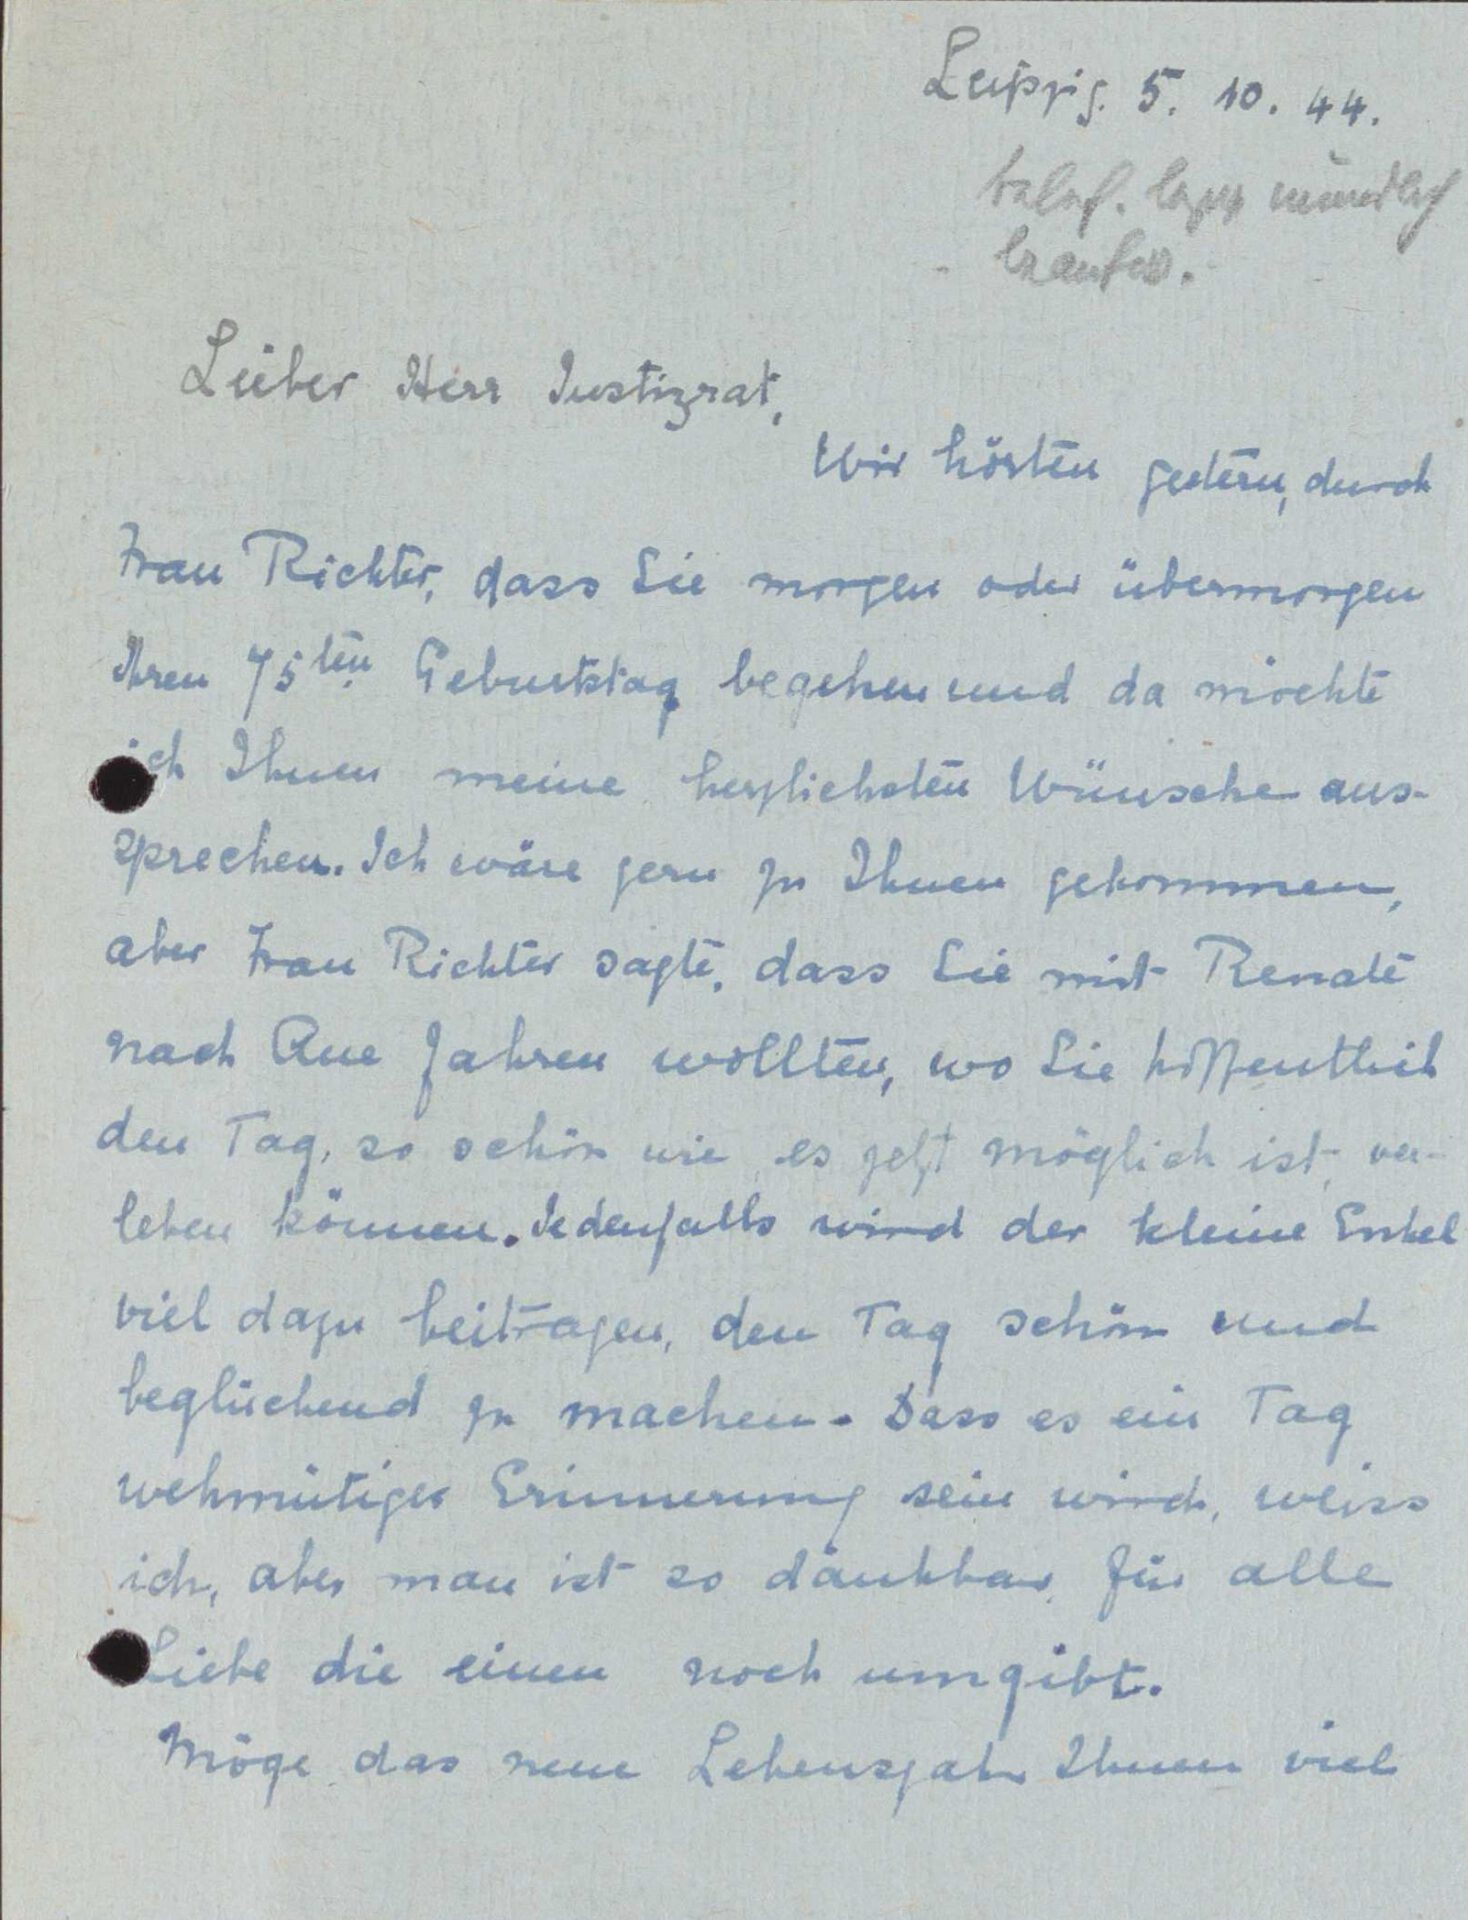 Leipzig. 5. 10. 44.
telef. bezw mündlich
Lieber Herr Justizrat,
Wir hörten gestern, durch
Frau Richter, dass Sie morgen oder übermorgen
Ihren 75ten Geburtstag begehen und da möchte
ich Ihnen meine herzlichsten Wünsche aus-
sprechen. Ich wäre gern zu Ihnen gekommen,
aber Frau Richter sagte, dass Sie mit Renate
nach Aue fahren wollten, wo Sie hoffentlich
den Tag, so schön wie es jetzt möglich ist, ver-
leben können. Jedenfalls wird der kleine Enkel
viel dazu beitragen, den Tag schön und
beglückend zu machen. Dass es ein Tag
wehmütiger Erinnerung sein wird, weiss
ich, aber man ist so dankbar für alle
Liebe die einen noch umgibt.
Möge das neue Lebensjahr Ihnen viel